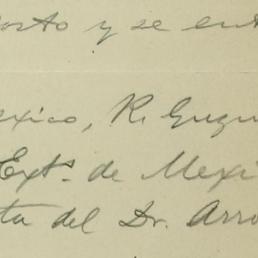 osto y se ent
exico, R. Guzm
Exts. de Mexi
ta del Dr. Arro